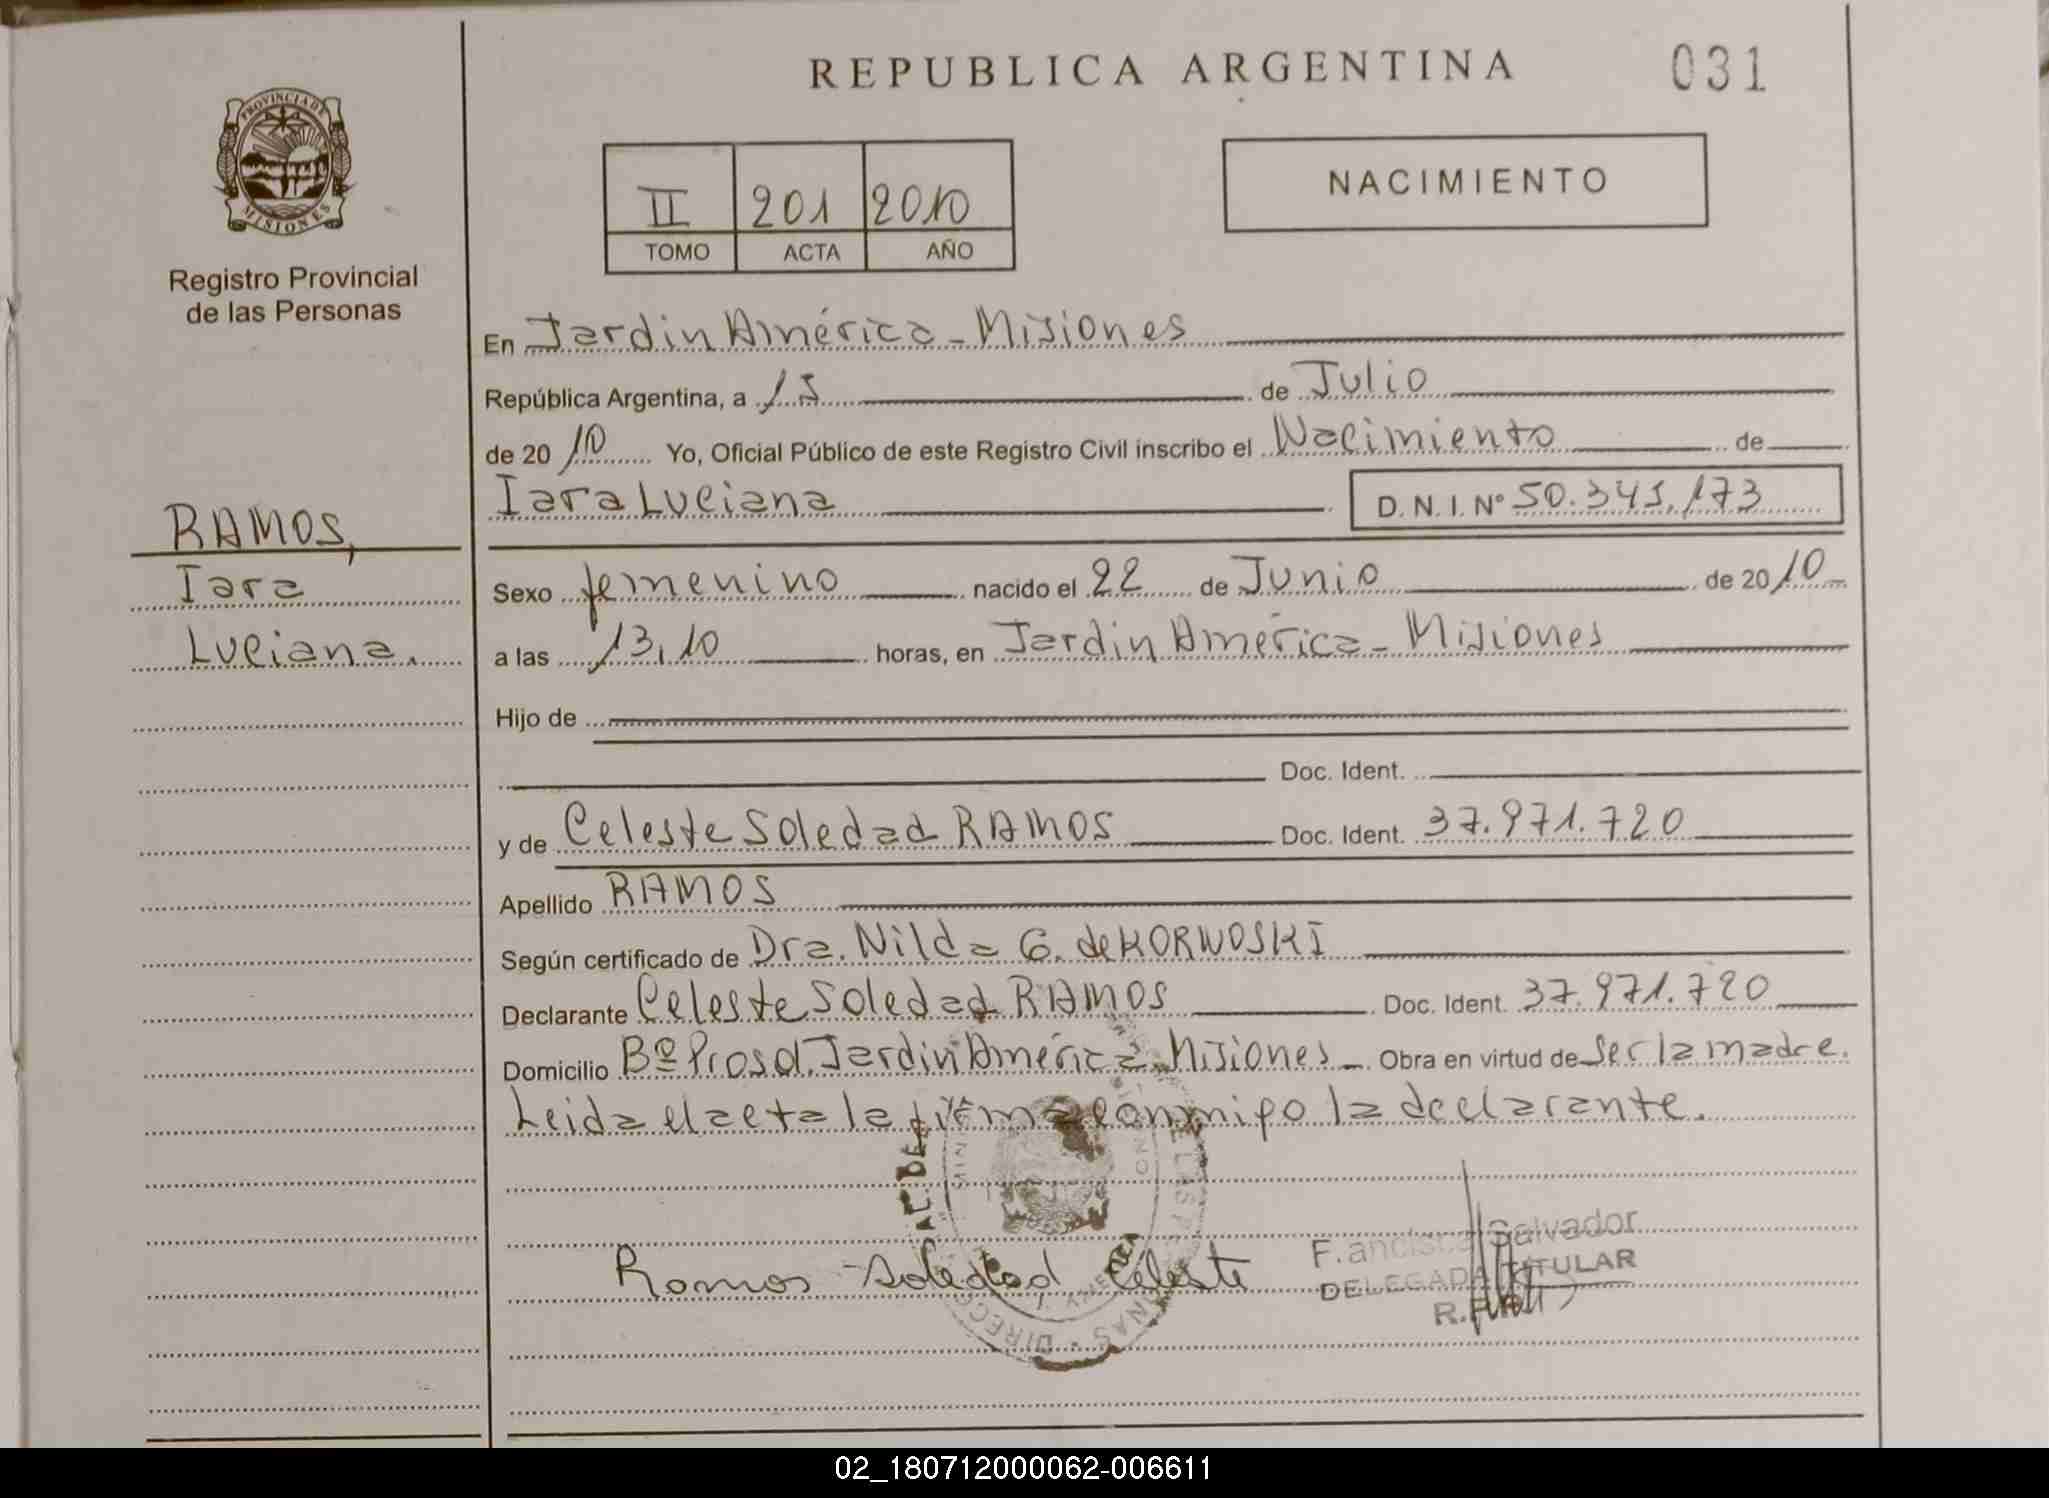 REPUBLICA ARGENTINA
031
PROVINCIA DE
MISIONES
Registro Provincial
de las Personas
NACIMIENTO
II 201 2010
TOMO ACTA AÑO
En Jardin América - Misiones
República Argentina, a 15 de Julio
de 2010 Yo, Oficial Público de este Registro Civil inscribo el Nacimiento de
Iara Luciana D.N.I. Nº 50.345.173
RAMOS,
Iara
Luciana.
Sexo femenino nacido el 22 de Junio de 2010
a las 13,10 horas, en Jardin América - Misiones
Hijo de
Doc. Ident.
y de Celeste Soledad RAMOS Doc. Ident. 37.971.720
Apellido RAMOS
Según certificado de Dra. Nilda G. de KORWOSKI
Declarante Celeste Soledad RAMOS Doc. Ident. 37.971.720
Domicilio Bº Prosol. Jardin América. Misiones - Obra en virtud de ser la madre.
Leida el acta la firma conmigo la declarante.
Ramos Soledad Celeste
Salvador
DELEGADA TITULAR
02_180712000062-006611